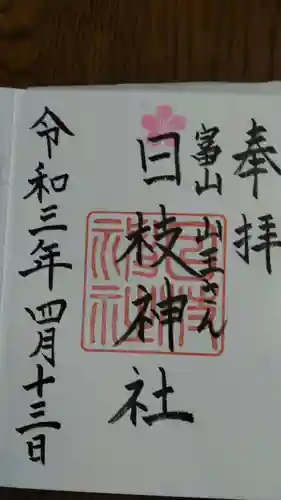 奉拝
富山山王さん
日枝神社
令和三年四月十三日
日枝神社